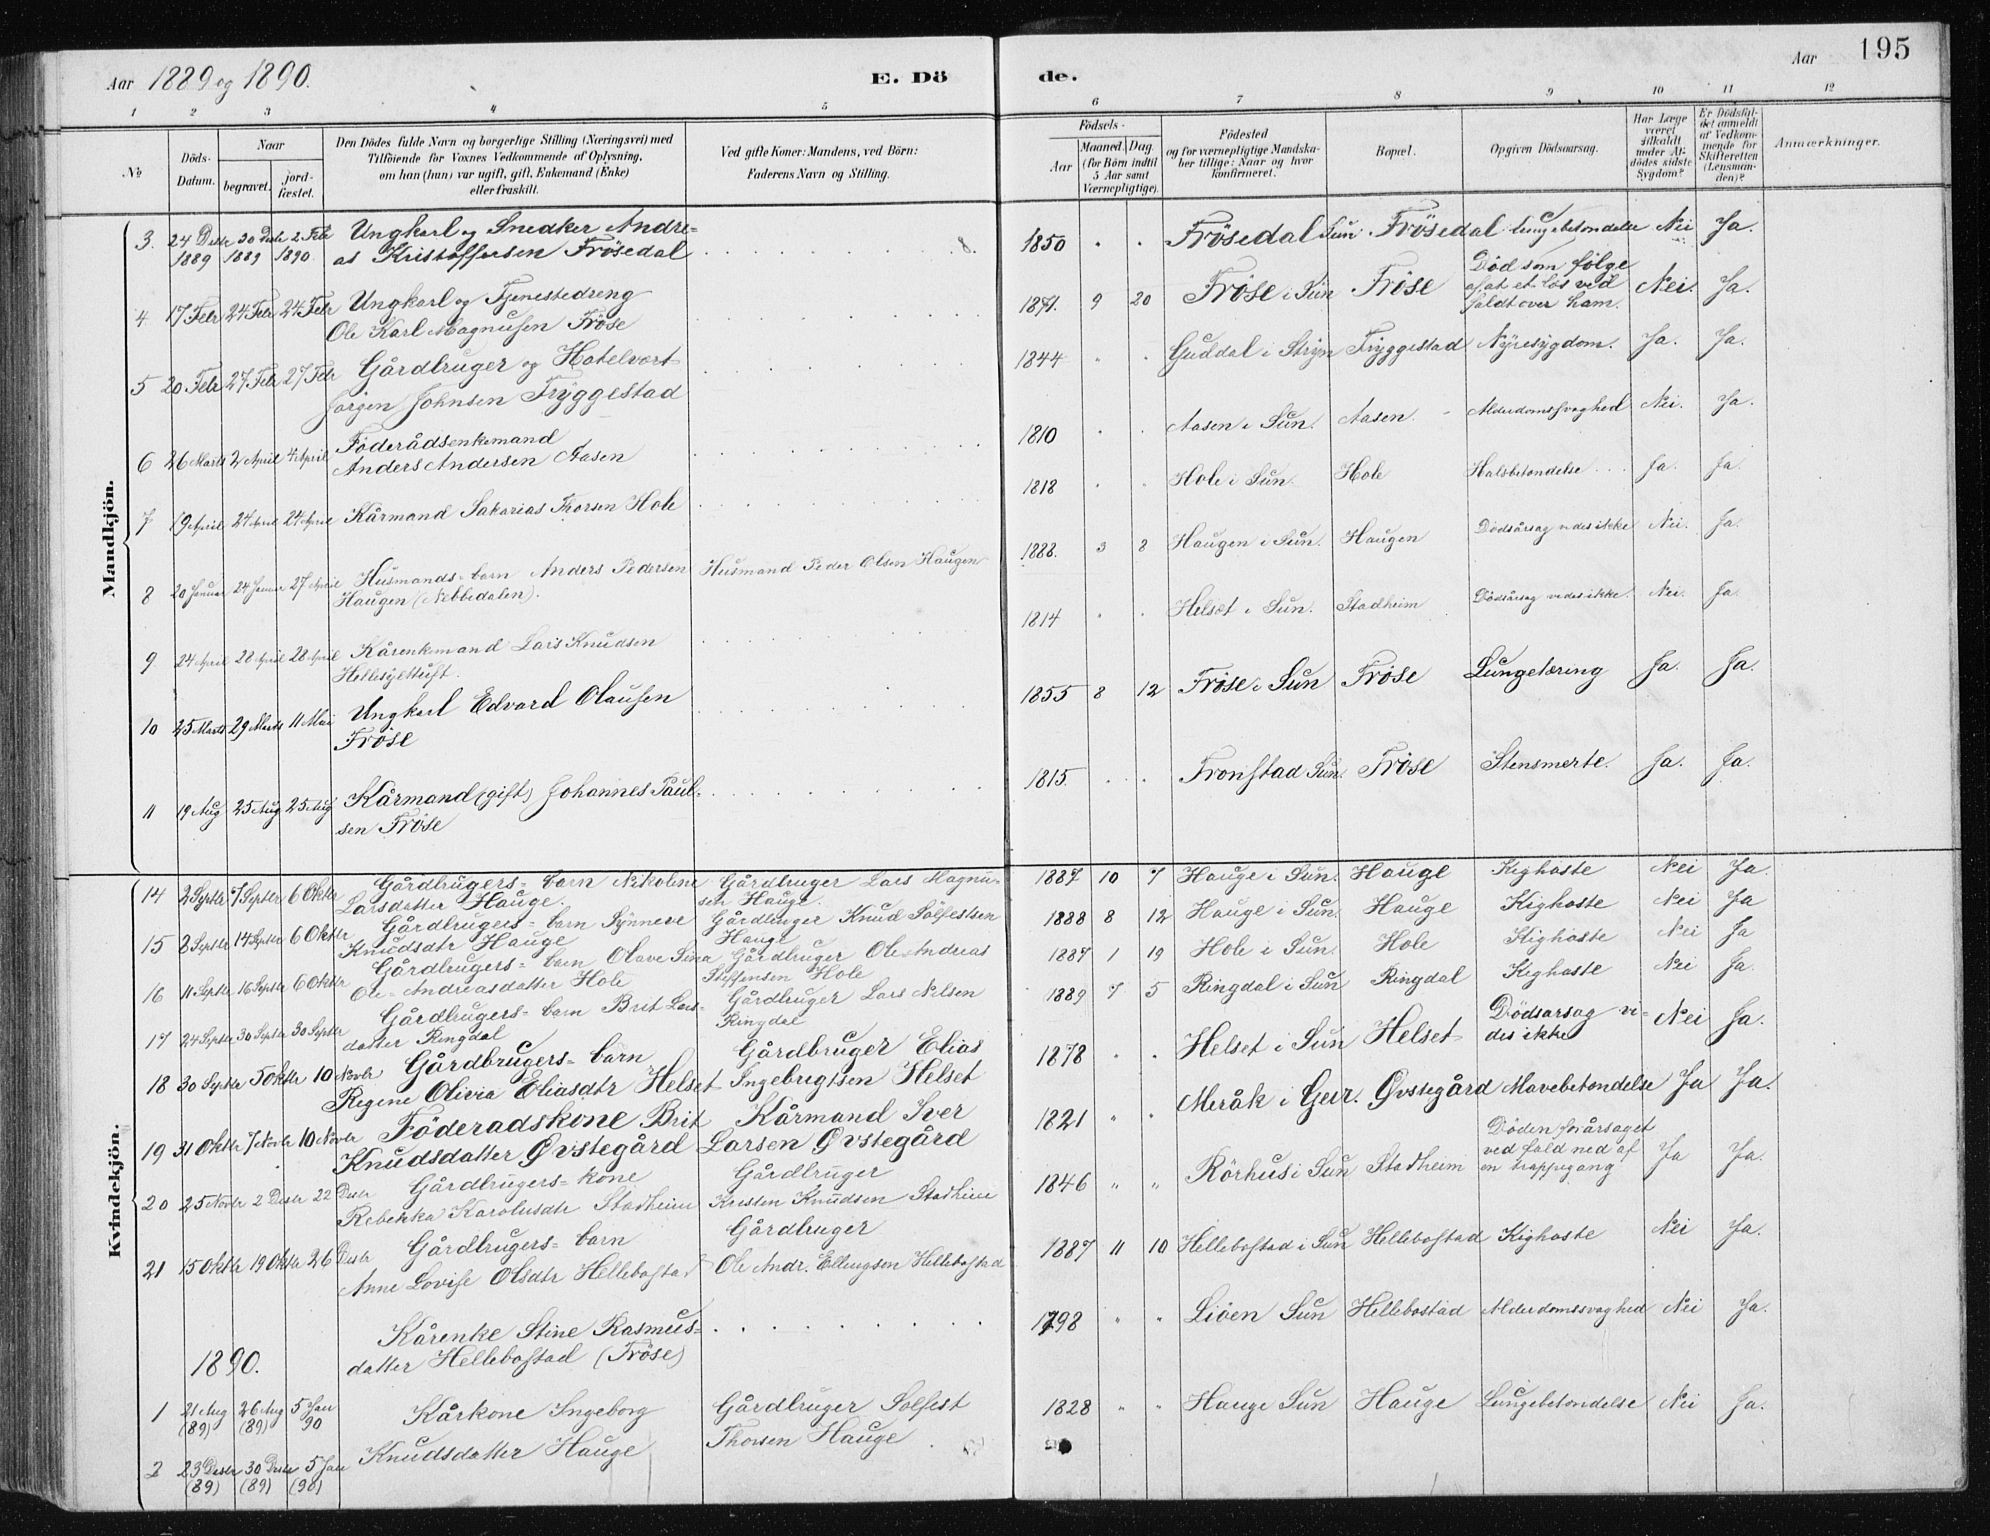 Aar 1889 og 1890. E. Dö de. Aar 195
1 2 3 4 5 6 7 8 9 10 11 12
No
Döds-Datum.
Naar
begravet. jord-fæstet.
Den Dödes fulde Navn og borgerlige Stilling (Næringsvei) med
Tilföiende for Voxnes Vedkommende af Oplysning,
om han (hun) var ugift, gift, Enkemand (Enke)
eller fraskilt.
Ved gifte Koner: Mandens, ved Börn:
Faderens Navn og Stilling.
Födsels-
Aar Maaned. Dag.
(for Börn indtil
5 Aar samt
Værnepligtige).
Födested
og for værnepligtige Mandska-
ber tillige: Naar og hvor
konfirmeret.
Bopæl.
Opgiven Dödsaarsag.
Har Læge
været
tilkaldt
under Af-
dödes sidste
Sygdom?
Er Dödsfal-
det anmeldt
af Vedkom-
mende for
Skifteretten
(Lensman-
den)?
Anmærkninger.
Mandkjön.
3. 24 Decbr 1889 30 Decbr 1889 2 Febr 1890 Ungkarl og Snedker Andre=
as Kristoffersen Frösedal 1850 Frösedal Sun Frösedal Lungebetændelse Nei Ja.
4. 17 Febr 24 Febr 24 Febr Ungkarl og Tjenestedreng
Ole Karl Magnusen Fröse 1871. 9 20 Fröse i Sun Fröse Död som fölge
af at et lös ved
faldt over ham. Nei. Ja.
5 20 Febr 27 Febr 27 Febr Gårdbruger og Hotelvært
Jörgen Johnsen Tryggestad 1844 Guddal i Stryn Tryggestad Nyresygdom. Ja. Ja.
6 26 Marts 2 April 4 April Föderådsenkemand
Anders Andersen Aasen 1810 Aasen i Sun. Aasen. Alderdomssvaghed Nei. Ja.
7 19 April 24 April 24 April Kårmand Sakarias Thorsen Hole 1818 Hole i Sun. Hole Halsbetændelse Ja. Ja
8 20 Januar 24 Januar 27 April Husmands=barn Anders Pedersen
Haugen (Nebbedalen). Husmand Peder Olsen Haugen 1888. 3 8 Haugen i Sun. Haugen Dödsårsag vides ikke Nei. Ja.
9 24 April 28 April 28 April Kårenkemand Lars Knudsen
Hellesylttuft. 1814 Helset i Sun. Stadheim Dödsårsag vides ikke. Nei. Ja.
10 25 Marts 29 Marts 11 Mai Ungkarl Edvard Olausen
Fröse 1855 8 12 Fröse i Sun Fröse Lungetæring Ja. Ja.
11 19 Aug 25 Aug 25 Aug Kårmand (gift) Johannes Paul=
sen Fröse 1815. Fronstad Sun. Fröse Stensmerte. Ja. Ja.
Kvindekjön.
14 2 Septbr 7 Septbr 6 Oktbr Gårdbrugers=barn Nikoline
Larsdatter Hauge. Gårdbruger Lars Magnu-
sen Hauge. 1887 10 7 Hauge i Sun. Hauge Kighoste Nei Ja.
15 8 Septbr 14 Septbr 6 Oktbr Gårdbrugers=barn Synneve
Knudsdtr Hauge Gårdbruger Knud Sölfestsen
Hauge 1888 8 12 Hauge i Sun. Hauge Kighoste Nei Ja
16 11 Septbr 16 Septbr 6 Oktbr Gårdbrugers=barn Olave Sina
Ole-Andreasdatter Hole Gårdbruger Ole Andreas
Steffensen Hole 1887 1 19 Hole i Sun. Hole Kighoste Nei Ja
17 24 Septbr 30 Septbr 30 Septbr Gårdbrugers=barn Brit Lars-
datter Ringdal Gårdbruger Lars Nilsen
Ringdal 1889 7 5 Ringdal i Sun Ringdal Kighoste Nei Ja.
18 30 Septbr 5 Oktbr 10 Novbr Gårdbrugers=barn
Regine Olivia Eliasdtr Helset Gårdbruger Elias
Ingebrigtsen Helset 1878 Helset i Sun Helset Dödsarsag vi-
des ikke Nei Ja.
19 31 Oktbr 7 Novbr 10 Novbr Föderadskone Brit
Knudsdatter Øvstegård Kårmand Iver
Larsen Øvstegård 1821 " " Meråk i Geir. Øvstegård Mavebetændelse Ja Ja.
20 25 Novbr 2 Decbr 22 Decbr Gårdbrugers=kone
Rebekka Karolusdtr Stadheim Gårdbruger
Kristen Knudsen Stadheim 1846 " " Rörhus i Sun Stadheim Döden forårsaget
ved fald ned af
en trappegang Ja Ja.
21 15 Oktbr 19 Oktbr 26 Decbr Gårdbrugers=barn
Anne Lovise Olsdtr Hellebostad Gårdbruger
Ole Andr. Ellingsen Hellebostad 1887 11 10 Hellebostad i Sun Hellebostad Kighoste Nei Ja.
1890.
1 21 Aug (89) 26 Aug (89) 5 Jan 90 Kårenke Stine Rasmus=
datter Hellebostad (Fröse) 1798 " " Liöen Sun Hellebostad Alderdomssvaghed Nei Ja.
2 23 Decbr (89) 30 Decbr (89) 5 Jan (90) Kårkone Ingeborg
Knudsdatter Hauge Gårdbruger Solfest
Thorsen Hauge 1828 " " Hauge Sun Hauge Lungebetændelse Nei Ja.